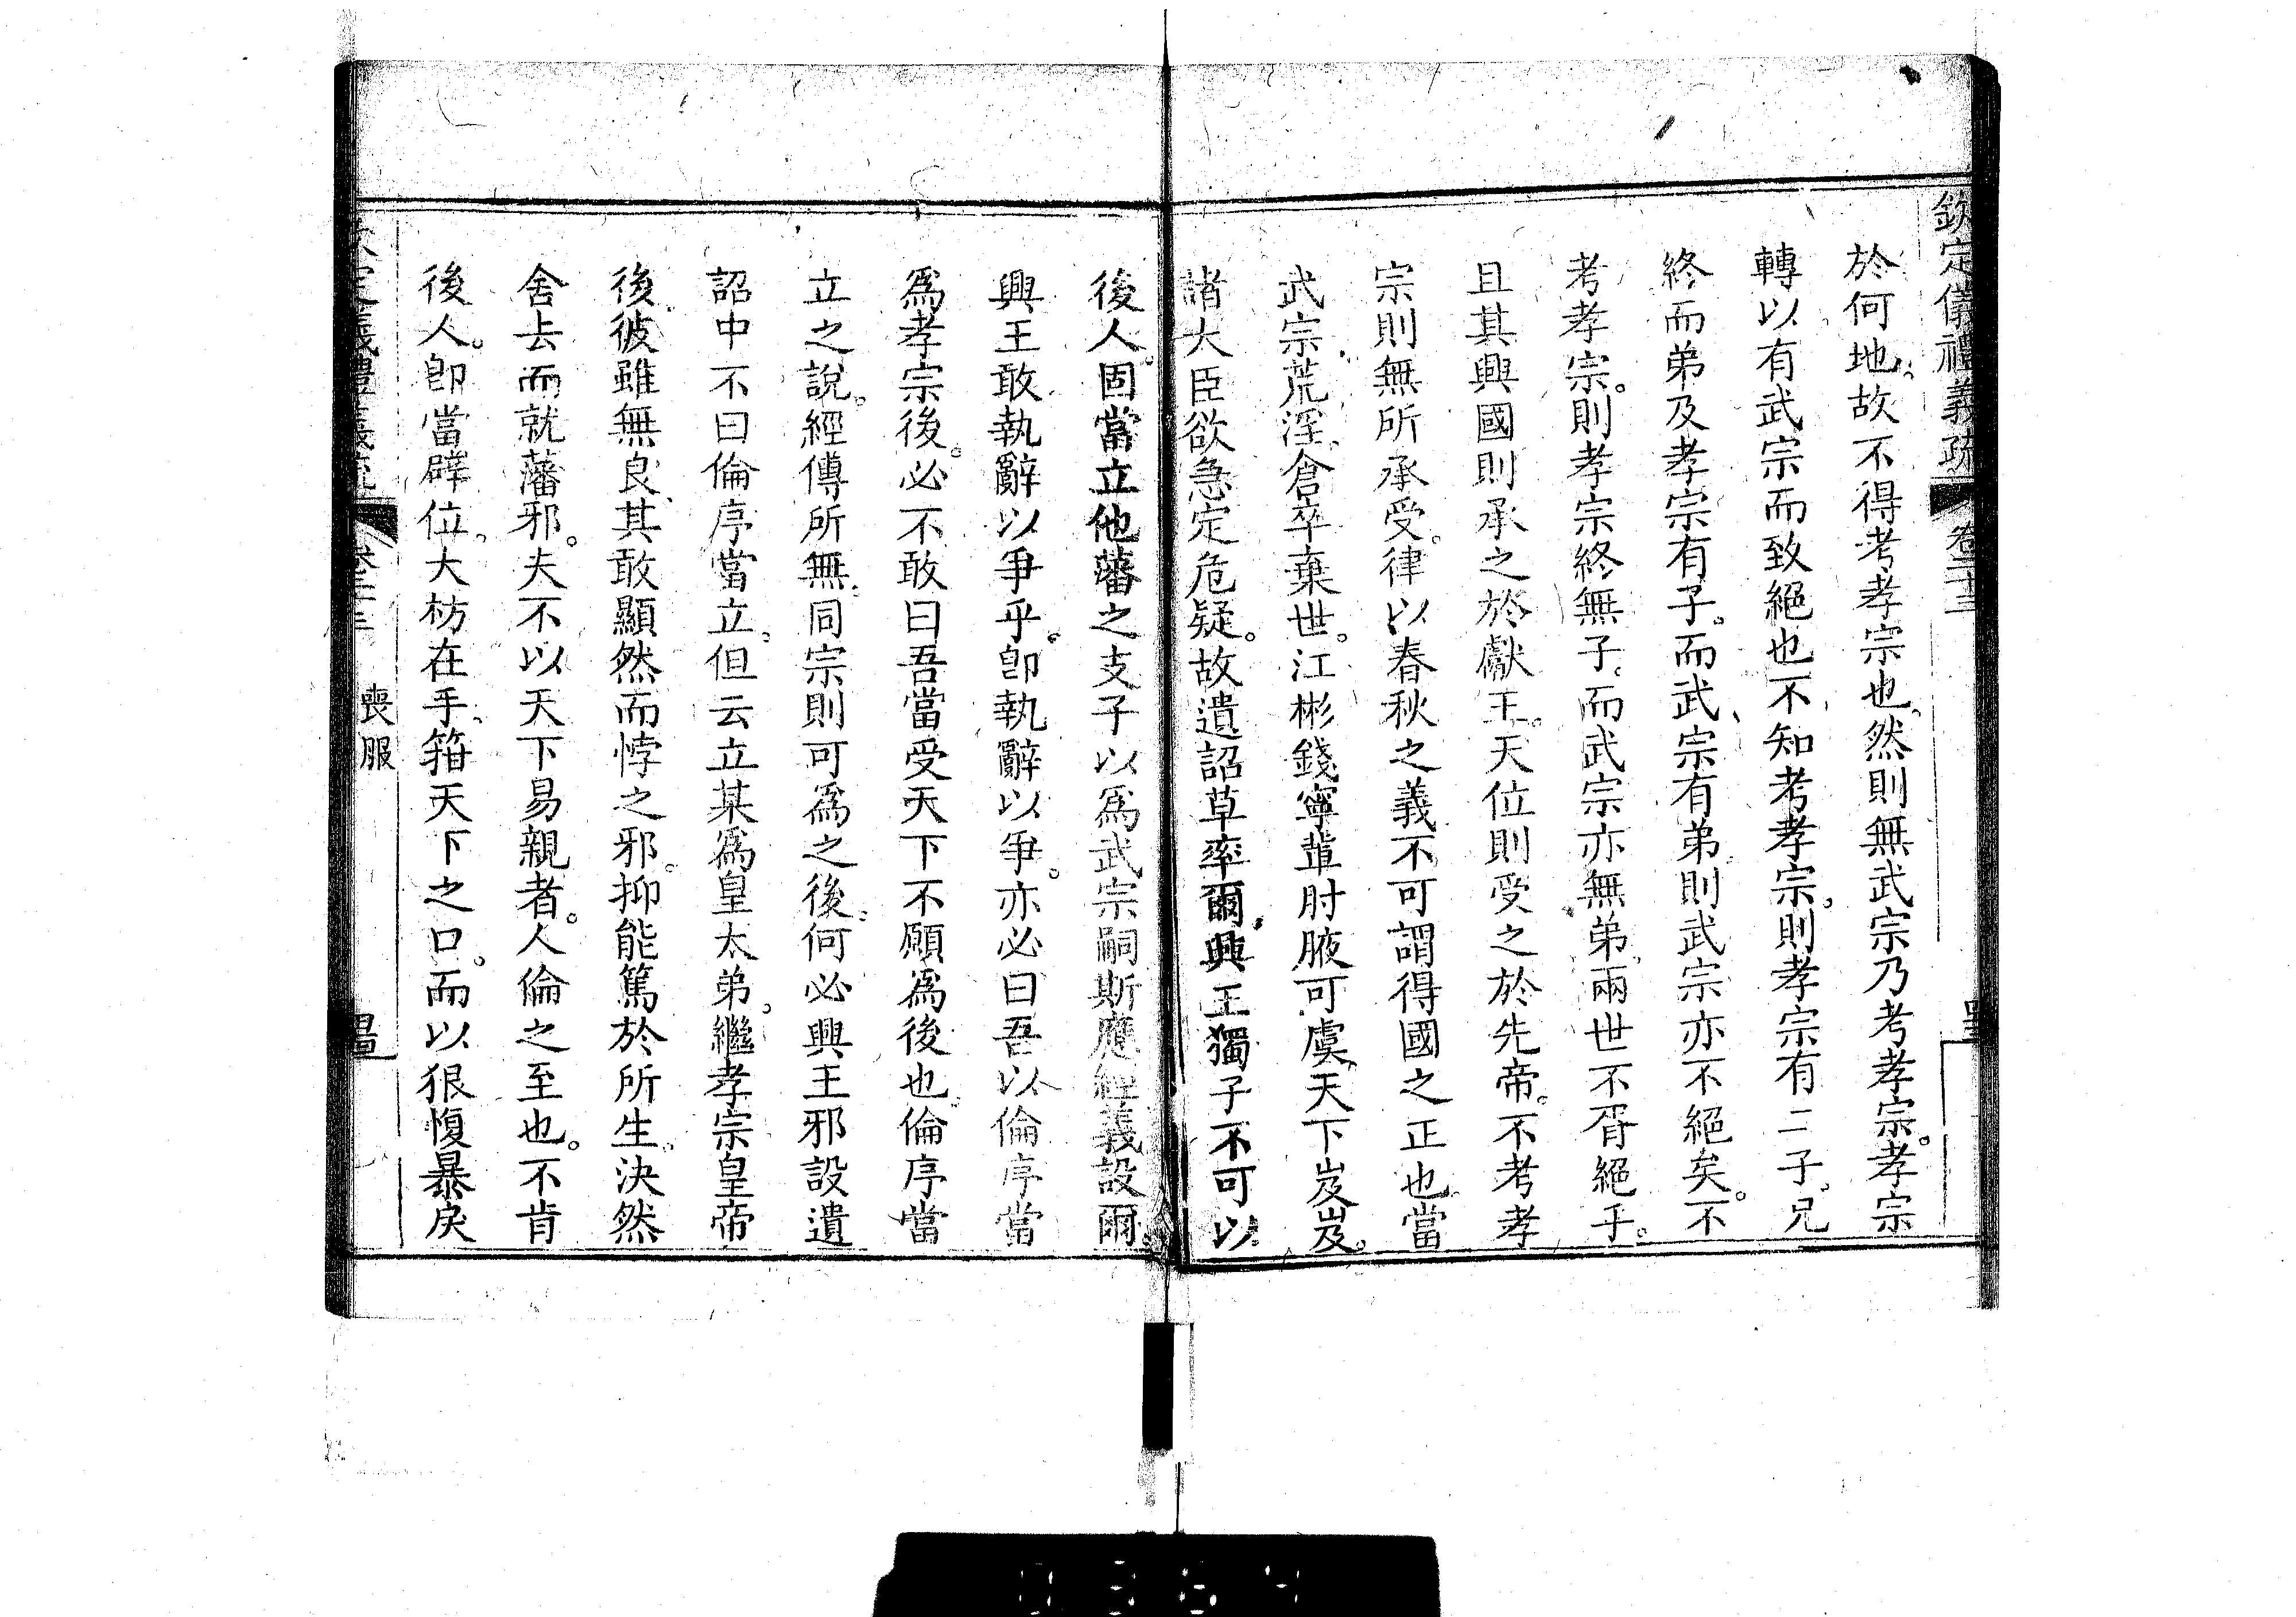 欽定儀禮義疏 卷二十三
於何地。故不得考孝宗也。然則無武宗乃考孝宗。孝宗
轉以有武宗而致絕也。不知考孝宗。則孝宗有二子。兄
終而弟及。孝宗有子。而武宗有弟。則武宗亦不絕矣。不
考孝宗。則孝宗終無子。而武宗亦無弟。兩世不胥絕乎。
且其興國則承之於獻王。天位則受之於先帝。不考孝
宗則無所承受。律以春秋之義不可謂得國之正也。當
武宗荒淫。倉卒棄世。江彬錢寧輩肘腋可虞。天下岌岌。
諸大臣欲急定危疑。故遺詔草率爾。興王獨子不可以
後人。固當立他藩之支子以為武宗嗣斯應經義設爾。
興王敢執辭以爭乎。卽執辭以爭。亦必曰吾以倫序當
為孝宗後。必不敢曰吾當受天下不願為後也。倫序當
立之說。經傳所無。同宗則可為之後。何必興王邪設遺
詔中不曰倫序當立。但云立某為皇太弟。繼孝宗皇帝
後。彼雖無良。其敢顯然而悖之邪。抑能篤於所生。決然
舍去而就藩邪。夫不以天下易親者。人倫之至也。不肯
後人。卽當辟位。大枋在手。箝天下之口。而以狠愎暴戾
定儀禮義疏 卷二十三 喪服